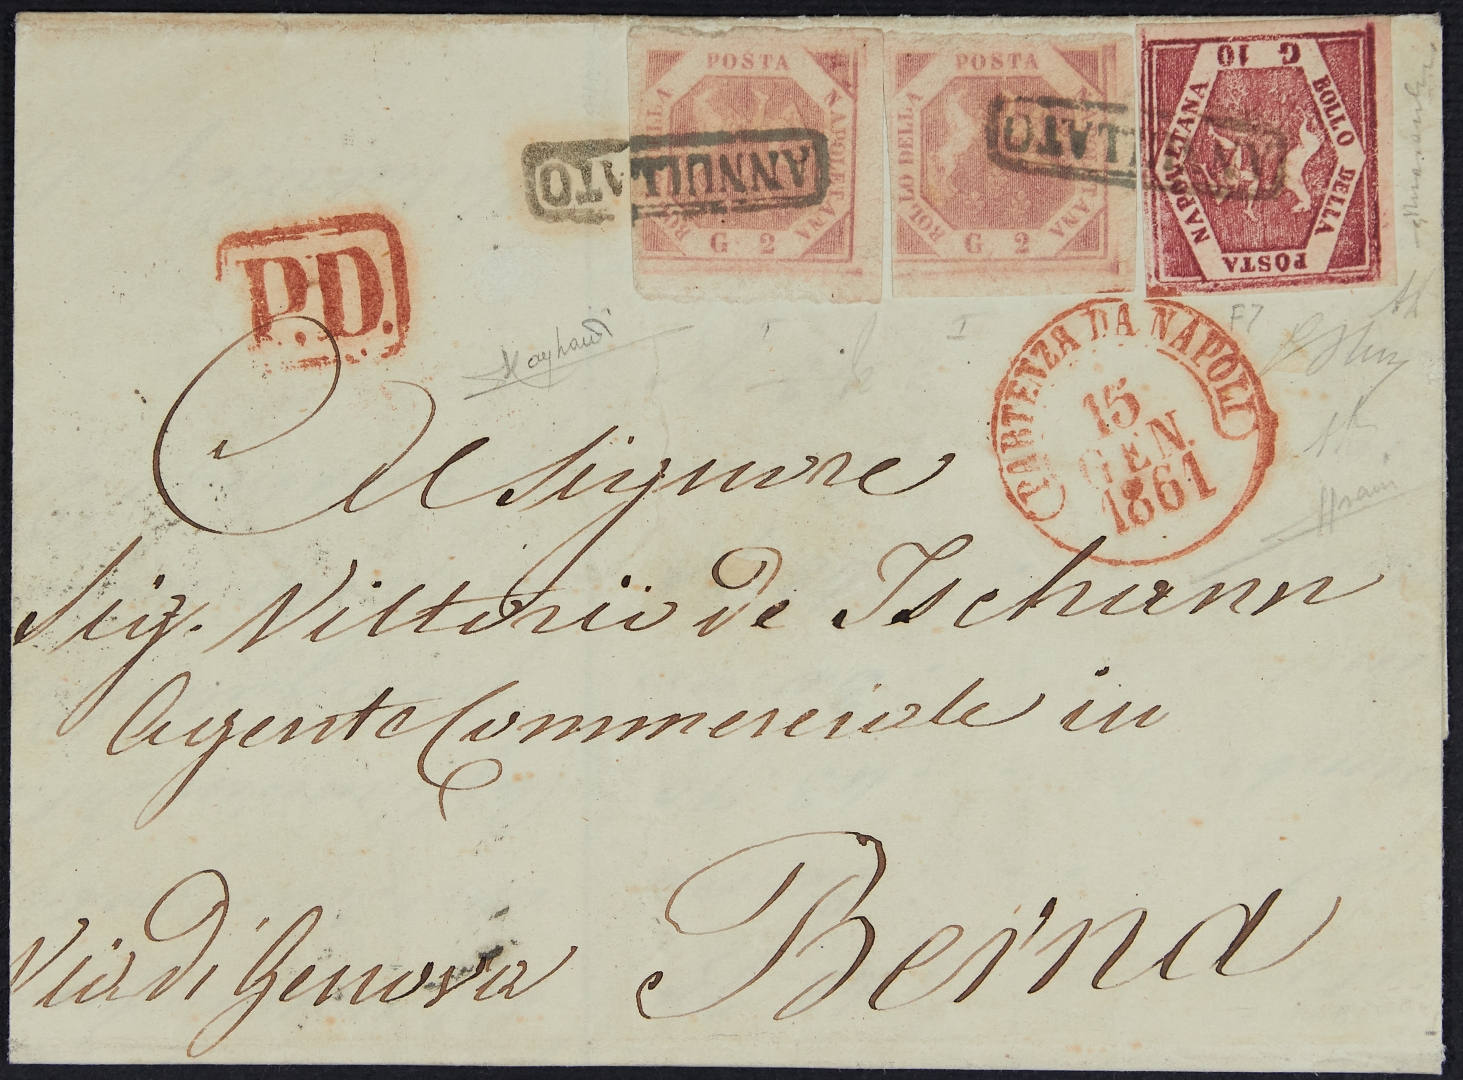 POSTA NAPOLETANA G 2 BOLLO DELLA
POSTA NAPOLETANA G 2 BOLLO DELLA
G 10 BOLLO DELLA POSTA NAPOLETANA
ANNULLATO
ANNULLATO
P.D.
PARTENZA DA NAPOLI
15
GEN.
1861
F7
I
Al Signore
Sig. Vittorio de Ischann
Agente Commerciale in
Via di Genova Berna